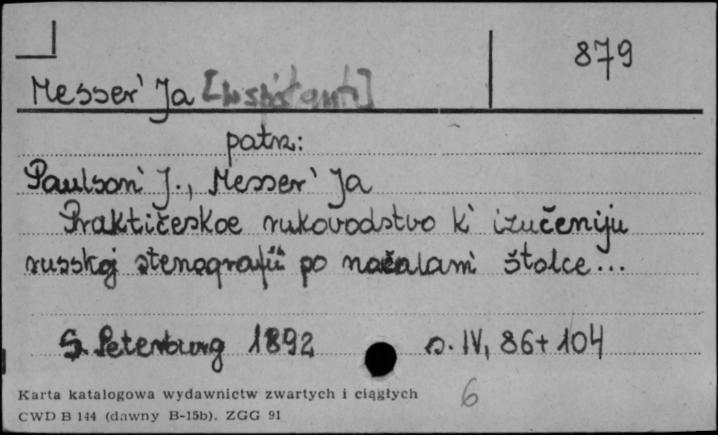 879
Messer' Ja
patrz:
Paulson' J., Messer' Ja
Praktičeskoe rukovodstvo k' izučeniju
russkoj stenografii po načalam' štolce...
S. Peterburg 1892 s. IV, 86+104
6
Karta katalogowa wydawnictw zwartych i ciągłych
CWD B 144 (dawny B-15b). ZGG 91